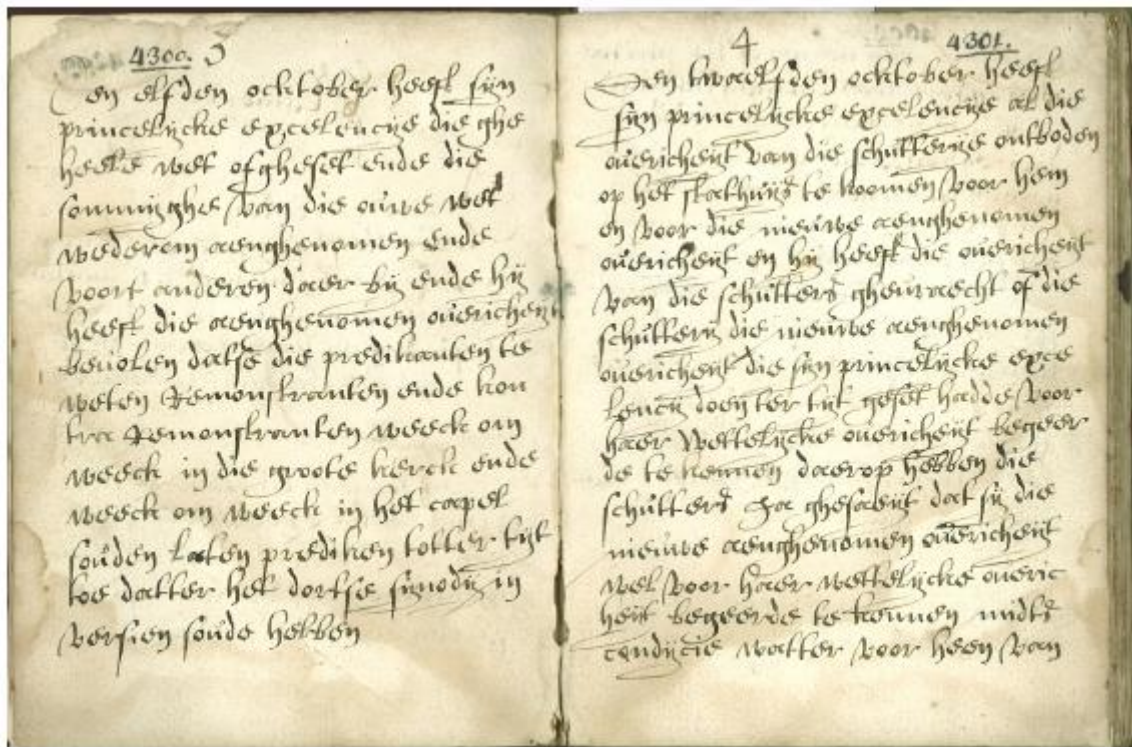 4300.
en elfden ocktober heeft sijn
princelijcke excelencije die ghe
heele wet ofgheset ende die
sommighe van die ouwe wet
wederom aenghenomen ende
voort anderen daer bij ende hij
heeft die aenghenomen overicheijt
bevolen datse die predikanten te
weten Remonstranten ende kon
tra Remonstranten weeck om
weeck in die groote kerck ende
weeck om weeck in het capel
souden laten prediken totter tijt
toe datter het dortse sijnodij in
versien soude hebben
4 4301.
Den twaelfden ocktober heeft
sijn princelijcke excelencije al die
overicheijt van die schutterije ontboden
op het stathuijs te koomen voor hem
en voor die nieuwe aenghenomen
overicheijt en hij heeft die overicheijt
van die schutters ghevraecht of die
schutterij die nieuwe aenghenomen
overicheijt die sijn princelijcke exce
lencij doen ter tijt geset hadde voor
haer wettelijcke overicheijt begeer
de te kennen daerop hebben die
schutters Ja ghesaeijt dat sij die
nieuwe aenghenomen overicheijt
wel voor haer wettelijcke overic
heijt begeerde te kennen midts
condijcie watter voor heen van